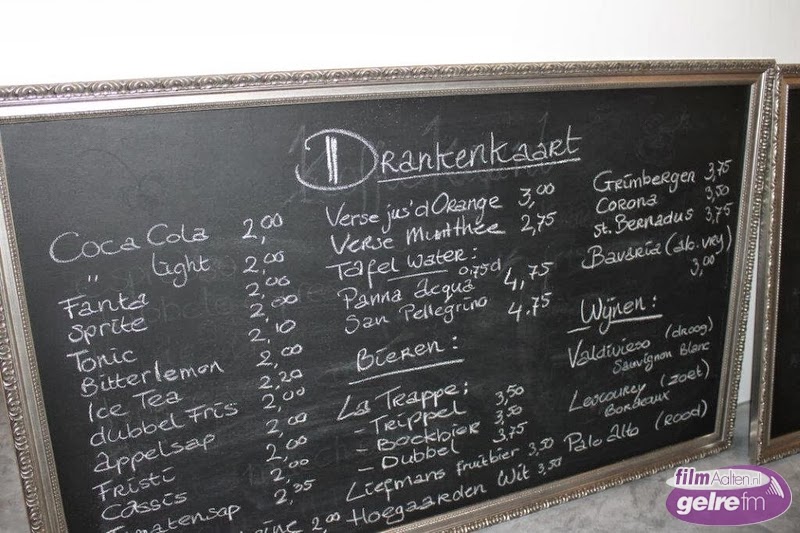 Drankenkaart
Coca Cola 2,00
" light 2,00
Fanta 2,00
Sprite 2,00
Tonic 2,10
Bitterlemon 2,00
Ice Tea 2,20
dubbel Fris 2,00
appelsap 2,00
Fristi 2,00
Cassis 2,35
Tomatensap
2,00
Verse jus'd Orange 3,00
Verse Munthee 2,75
Tafel water:
0,75cl
Panna acqua 4,75
San Pellegrino 4,75
Bieren:
La Trappe:
- Trippel 3,50
- Bockbier 3,50
- Dubbel 3,75
Liefmans fruitbier 3,50
Hoegaarden Wit 3,50
Grimbergen 3,75
Corona 3,50
st. Bernadus 3,75
Bavaria (alc. vry)
3,00
Wijnen:
Valdivieso (droog)
Sauvignon Blanc
(zoet)
Bordeaux
Palo Alto (Rood)
filmAalten.nl
gelre fm